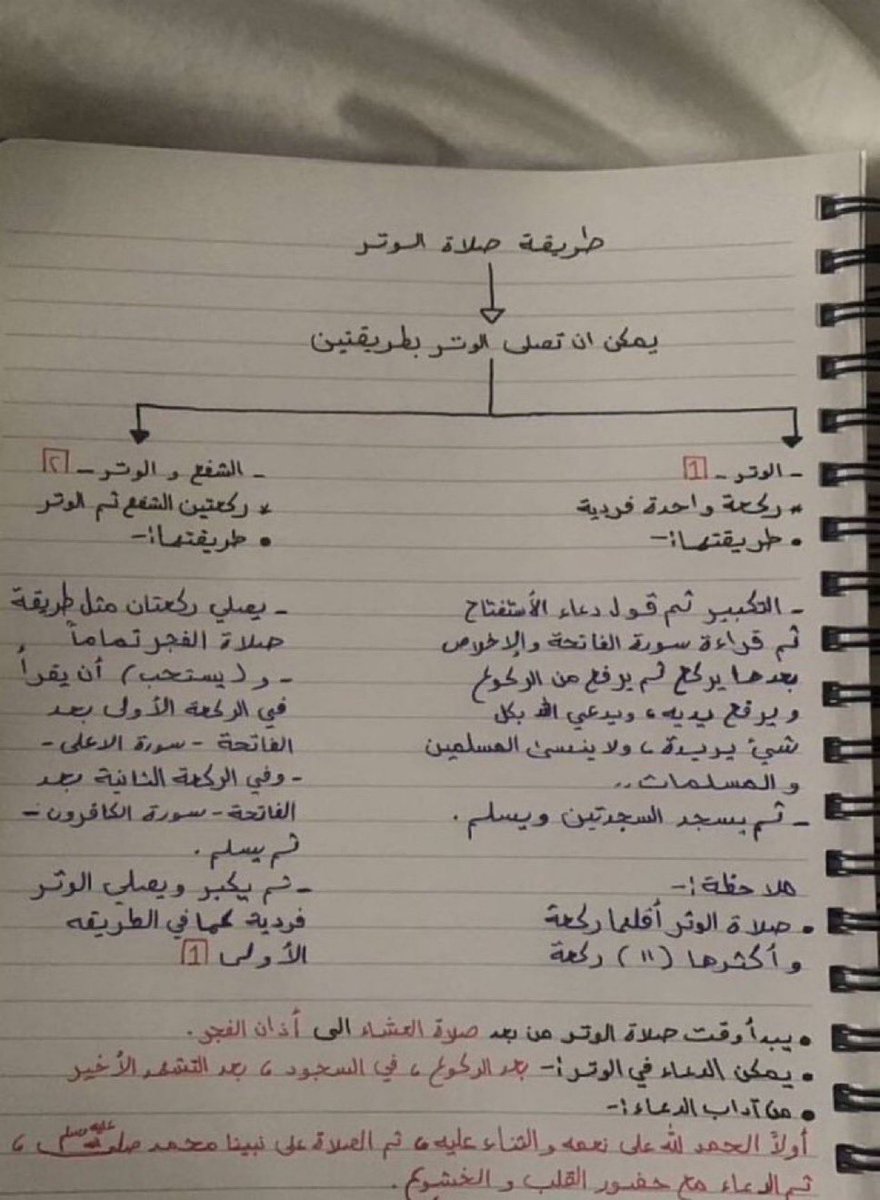 طريقة صلاة الوتر
يمكن ان تصلى الوتر بطريقتين
- الوتر - 1
* ركعة واحدة فردية
• طريقتها:-
- التكبير ثم قول دعاء الأستفتاح
ثم قراءة سورة الفاتحة والإخلاص
بعدها يركع ثم يرفع من الركوع
و يرفع يديه، ويدعي الله بكل
شيئ يريدة، ولا ينسئ المسلمين
و المسلمات..
- ثم يسجد السجدتين ويسلم.
ملاحظة:-
• صلاة الوتر أقلها ركعة
و أكثرها (١١) ركعة
- الشفع و الوتر - ٢
* ركعتين الشفع ثم الوتر
• طريقتها:-
- يصلي ركعتان مثل طريقة
صلاة الفجر تماماً
- و (يستحب) أن يقرأ
في الركعة الأولى بعد
الفاتحة - سورة الاعلى -
- وفي الركعة الثانية بعد
الفاتحة - سورة الكافرون -
ثم يسلم.
- ثم يكبر ويصلي الوتر
فردية كما في الطريقه
الأولى 1
• يبدأ وقت صلاة الوتر من بعد صلاة العشاء الى أذان الفجر.
• يمكن الدعاء في الوتر:- بعد الركوع، في السجود، بعد التشهد الأخير
• من آداب الدعاء:-
أولاً الحمد لله على نعمه والثناء عليه، ثم الصلاة على نبينا محمد صلى الله عليه وسلم،
ثم الدعاء مع حضور القلب و الخشوع.